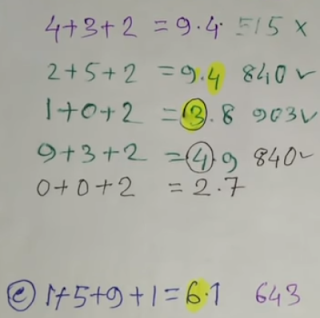 4+3+2 = 9.4 515 x
2+5+2 = 9.4 840 ✓
1+0+2 = 3.8 903 ✓
9+3+2 = 4 9 840 ✓
0+0+2 = 2.7
e 1+5+9+1 = 6.1 643